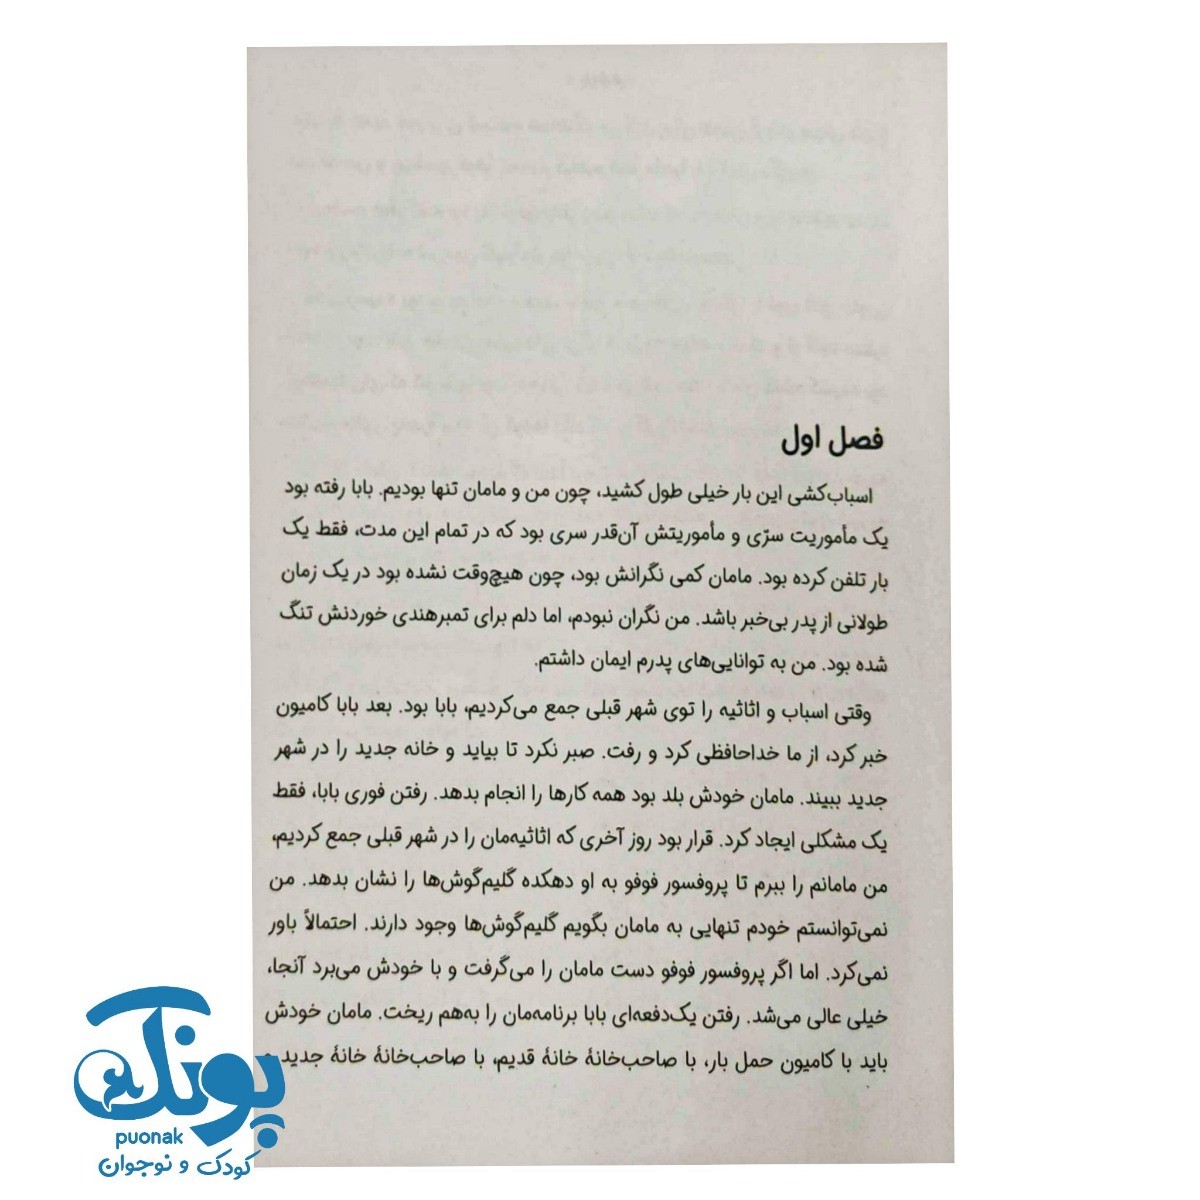 فصل اول
اسباب‌کشی این بار خیلی طول کشید، چون من و مامان تنها بودیم. بابا رفته بود
یک مأموریت سرّی و مأموریتش آن‌قدر سری بود که در تمام این مدت، فقط یک
بار تلفن کرده بود. مامان کمی نگرانش بود، چون هیچ‌وقت نشده بود در یک زمان
طولانی از پدر بی‌خبر باشد. من نگران نبودم، اما دلم برای تمبرهندی خوردنش تنگ
شده بود. من به توانایی‌های پدرم ایمان داشتم.
وقتی اسباب و اثاثیه را توی شهر قبلی جمع می‌کردیم، بابا بود. بعد بابا کامیون
خبر کرد، از ما خداحافظی کرد و رفت. صبر نکرد تا بیاید و خانه جدید را در شهر
جدید ببیند. مامان خودش بلد بود همه کارها را انجام بدهد. رفتن فوری بابا، فقط
یک مشکلی ایجاد کرد. قرار بود روز آخری که اثاثیه‌مان را در شهر قبلی جمع کردیم،
من مامانم را ببرم تا پروفسور فوفو به او دهکده گلیم‌گوش‌ها را نشان بدهد. من
نمی‌توانستم خودم تنهایی به مامان بگویم گلیم‌گوش‌ها وجود دارند. احتمالاً باور
نمی‌کرد. اما اگر پروفسور فوفو دست مامان را می‌گرفت و با خودش می‌برد آنجا،
خیلی عالی می‌شد. رفتن یک‌دفعه‌ای بابا برنامه‌مان را به‌هم ریخت. مامان خودش
باید با کامیون حمل بار، با صاحب‌خانهٔ خانهٔ قدیم، با صاحب‌خانهٔ خانهٔ جدید و
پونک
puonak
کودک و نوجوان